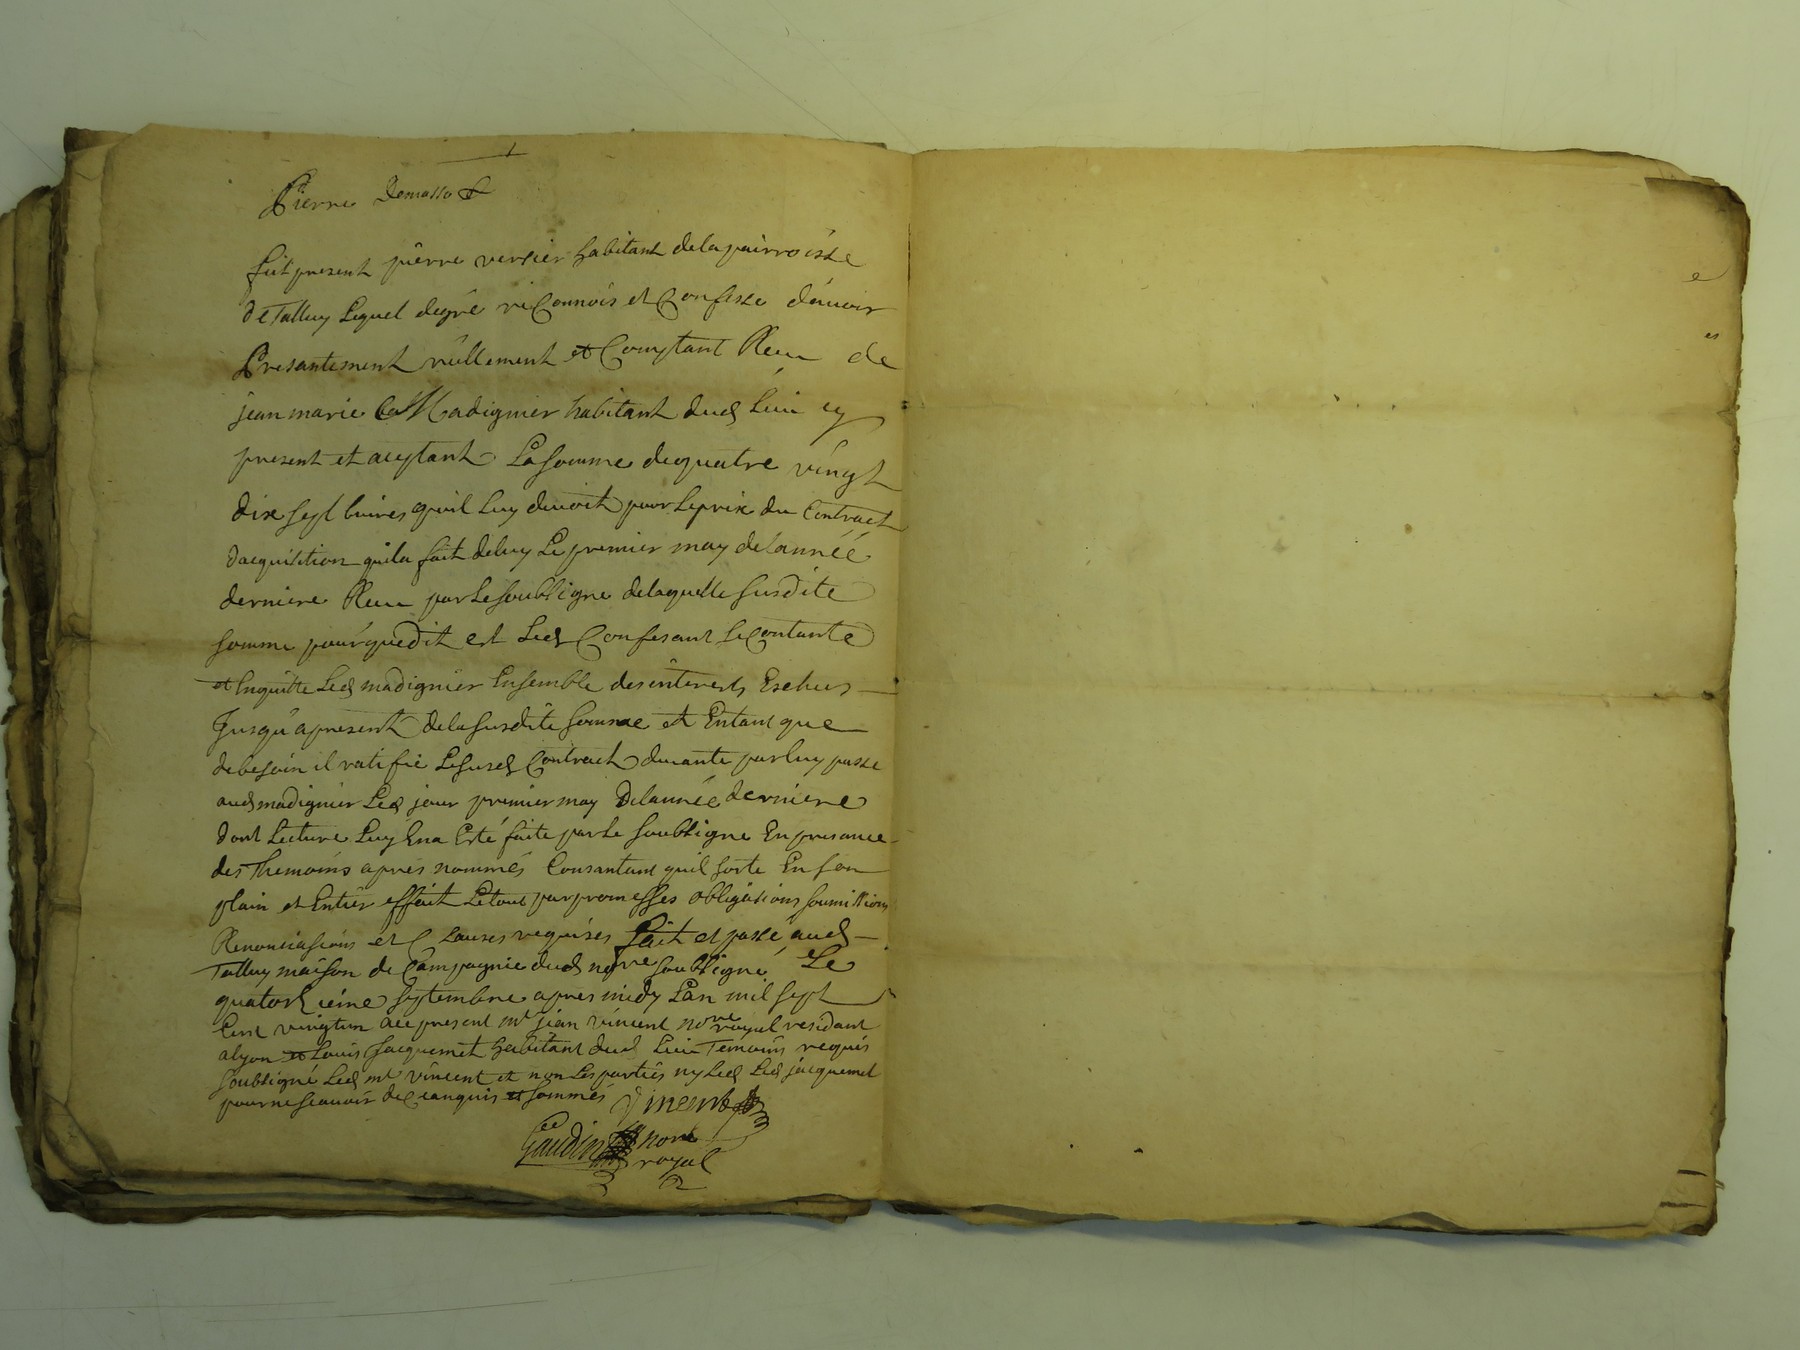 Pierre
fut present pierre verrier habitant dela pairroisse
de Talluy Lequel degré reConnois et Confesse dauoir
Presantement reellement et Comptant Receu de
jean marie Madignier habitant dud Lieu cy
present et aceptant La Somme de quatre vingt
dix sept liures quil Luy deuoit pour Le prix du Contract
dacquisition quila fait deluy Le premier may delannéé
derniere Receu par Le Soubsigne de laquelle Susdite
somme pour que dit est Led Confesant Se Contante
et Enquitte Led madignier Ensemble des interests Escheus
Jusqu'a present de la Susdite Somme et Entant que
de besoin il ratifie Le Susd Contract de uante par luy passe
aud madignier Led jour premier may De lannée derniere
dont Lecture Luy Ena Esté faite par Le Soubsigne En presance
des Themoins apres nommés Consantant quil sorte En son
plain et Entier effait Le tout par promesses obligations soumissions
Renonciasions et Clauses requises Fait et passé aud
Talluy maison de Campagnie dud nore soubsigné Le
quatorzieme Septembre apres midy Lan mil sept
Cent vingtun present mt jean vincent nore royal residant
alyon et Louis Jacquemet habitant dud Lieu Temoins requis
Soubsigné Led mt vincent et non Les parties ny Led jacquemet
pour ne scauoir de Cc enquis et sommés Vincent
Gaudin nore
royal
e
es